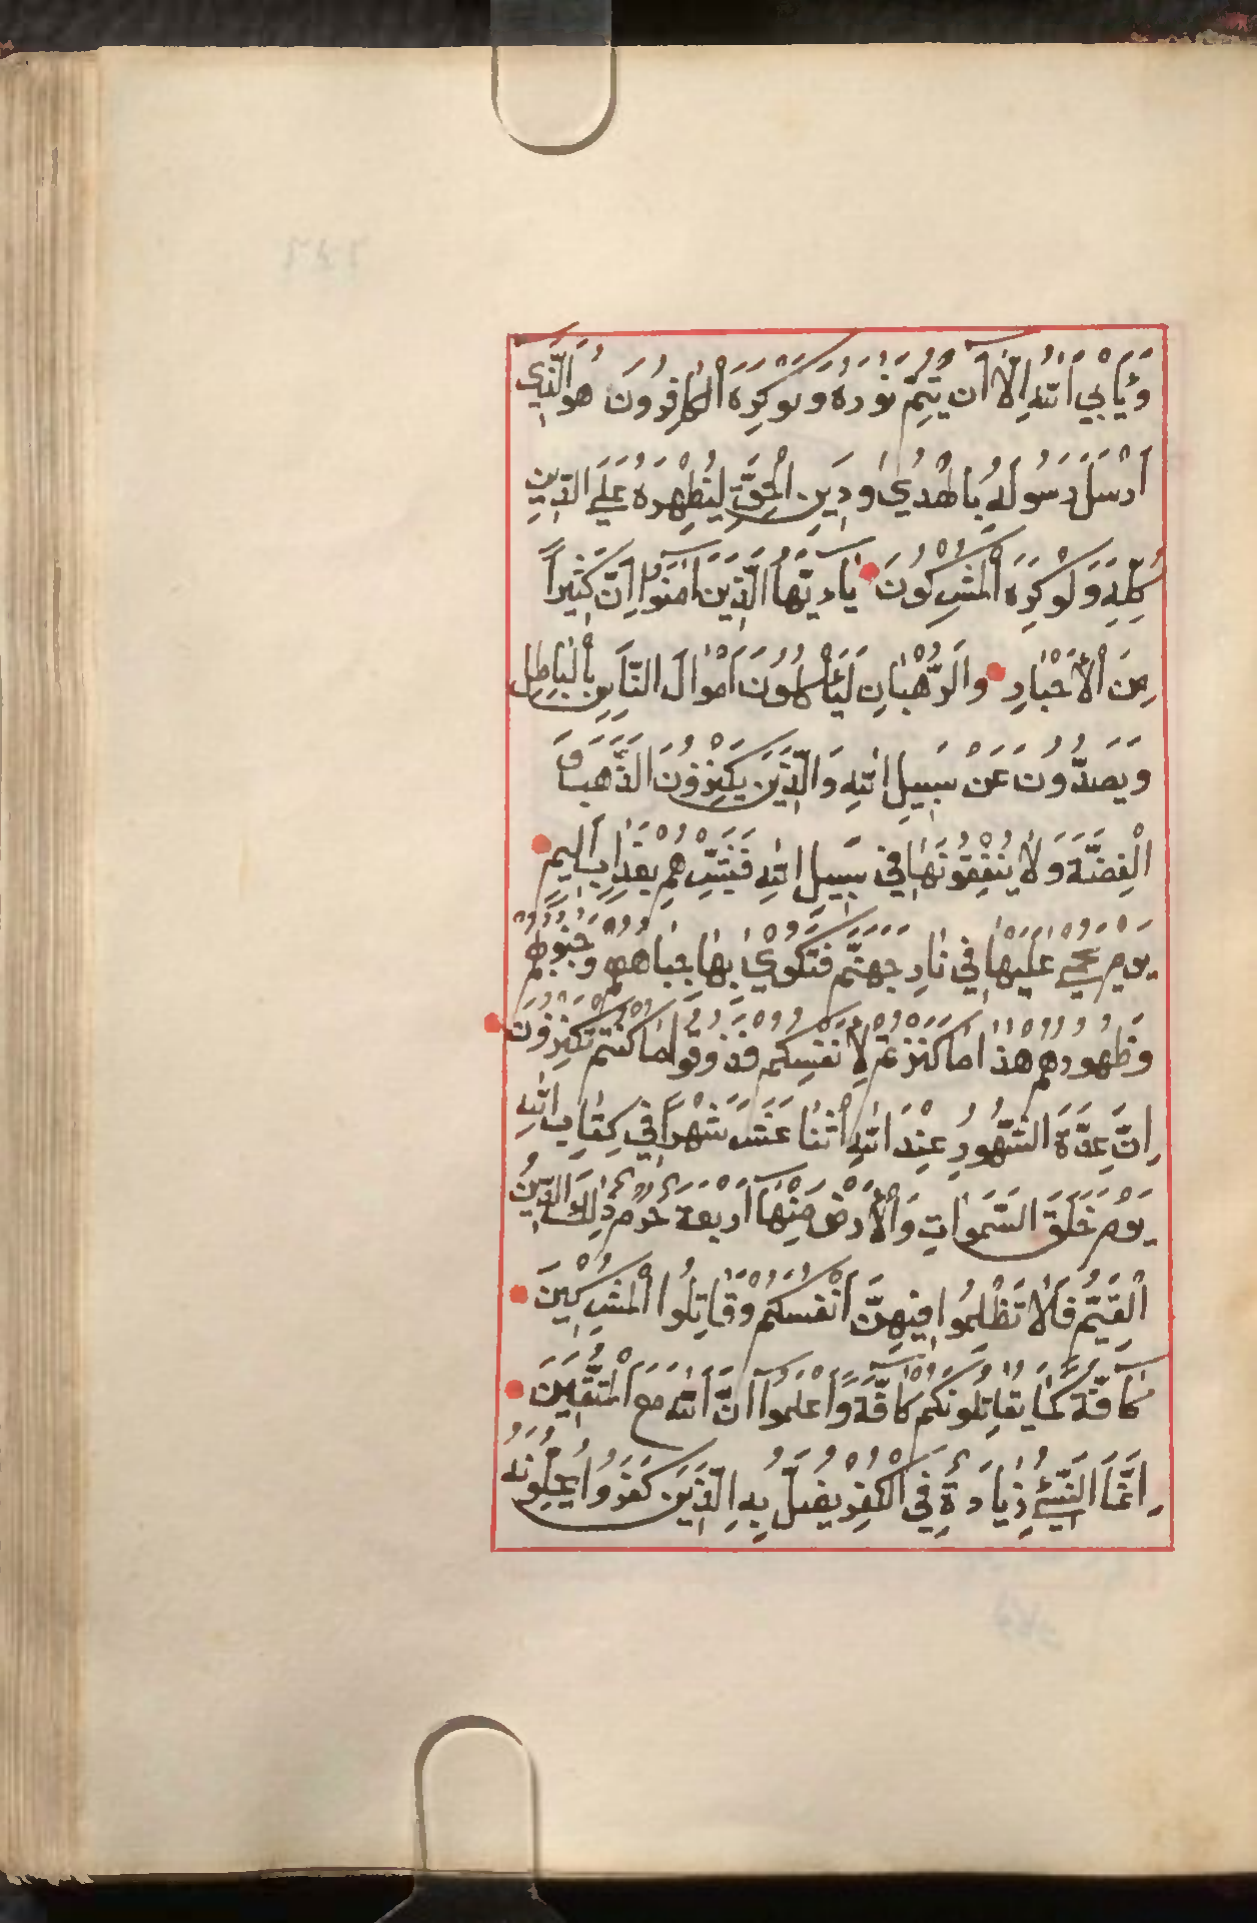 وَيَأْبَى اللهُ إِلَّا أَن يُتِمَّ نُورَهُ وَلَوْ كَرِهَ الْكَافِرُونَ هُوَ الَّذِي
أَرْسَلَ رَسُولَهُ بِالْهُدَىٰ وَدِينِ الْحَقِّ لِيُظْهِرَهُ عَلَى الدِّينِ
كُلِّهِ وَلَوْ كَرِهَ الْمُشْرِكُونَ يَاأَيُّهَا الَّذِينَ آمَنُوا إِنَّ كَثِيراً
مِنَ الْأَحْبَارِ وَالرُّهْبَانِ لَيَأْكُلُونَ أَمْوَالَ النَّاسِ بِالْبَاطِلِ
وَيَصُدُّونَ عَنْ سَبِيلِ اللهِ وَالَّذِينَ يَكْنِزُونَ الذَّهَبَ وَ
الْفِضَّةَ وَلَا يُنْفِقُونَهَا فِي سَبِيلِ اللهِ فَبَشِّرْهُمْ بِعَذَابٍ أَلِيمٍ
يَوْمَ يُحْمَىٰ عَلَيْهَا فِي نَارِ جَهَنَّمَ فَتُكْوَىٰ بِهَا جِبَاهُهُمْ وَجُنُوبُهُمْ
وَظُهُورُهُمْ هٰذَا مَا كَنَزْتُمْ لِأَنْفُسِكُمْ فَذُوقُوا مَا كُنْتُمْ تَكْنِزُونَ
إِنَّ عِدَّةَ الشُّهُورِ عِنْدَ اللهِ اثْنَا عَشَرَ شَهْراً فِي كِتَابِ اللهِ
يَوْمَ خَلَقَ السَّمَوَاتِ وَالْأَرْضَ مِنْهَا أَرْبَعَةٌ حُرُمٌ ذٰلِكَ الدِّينُ
الْقَيِّمُ فَلَا تَظْلِمُوا فِيهِنَّ أَنْفُسَكُمْ وَقَاتِلُوا الْمُشْرِكِينَ
كَافَّةً كَمَا يُقَاتِلُونَكُمْ كَافَّةً وَاعْلَمُوا أَنَّ اللهَ مَعَ الْمُتَّقِينَ
إِنَّمَا النَّسِيءُ زِيَادَةٌ فِي الْكُفْرِ يُضَلُّ بِهِ الَّذِينَ كَفَرُوا يُحِلُّونَهُ